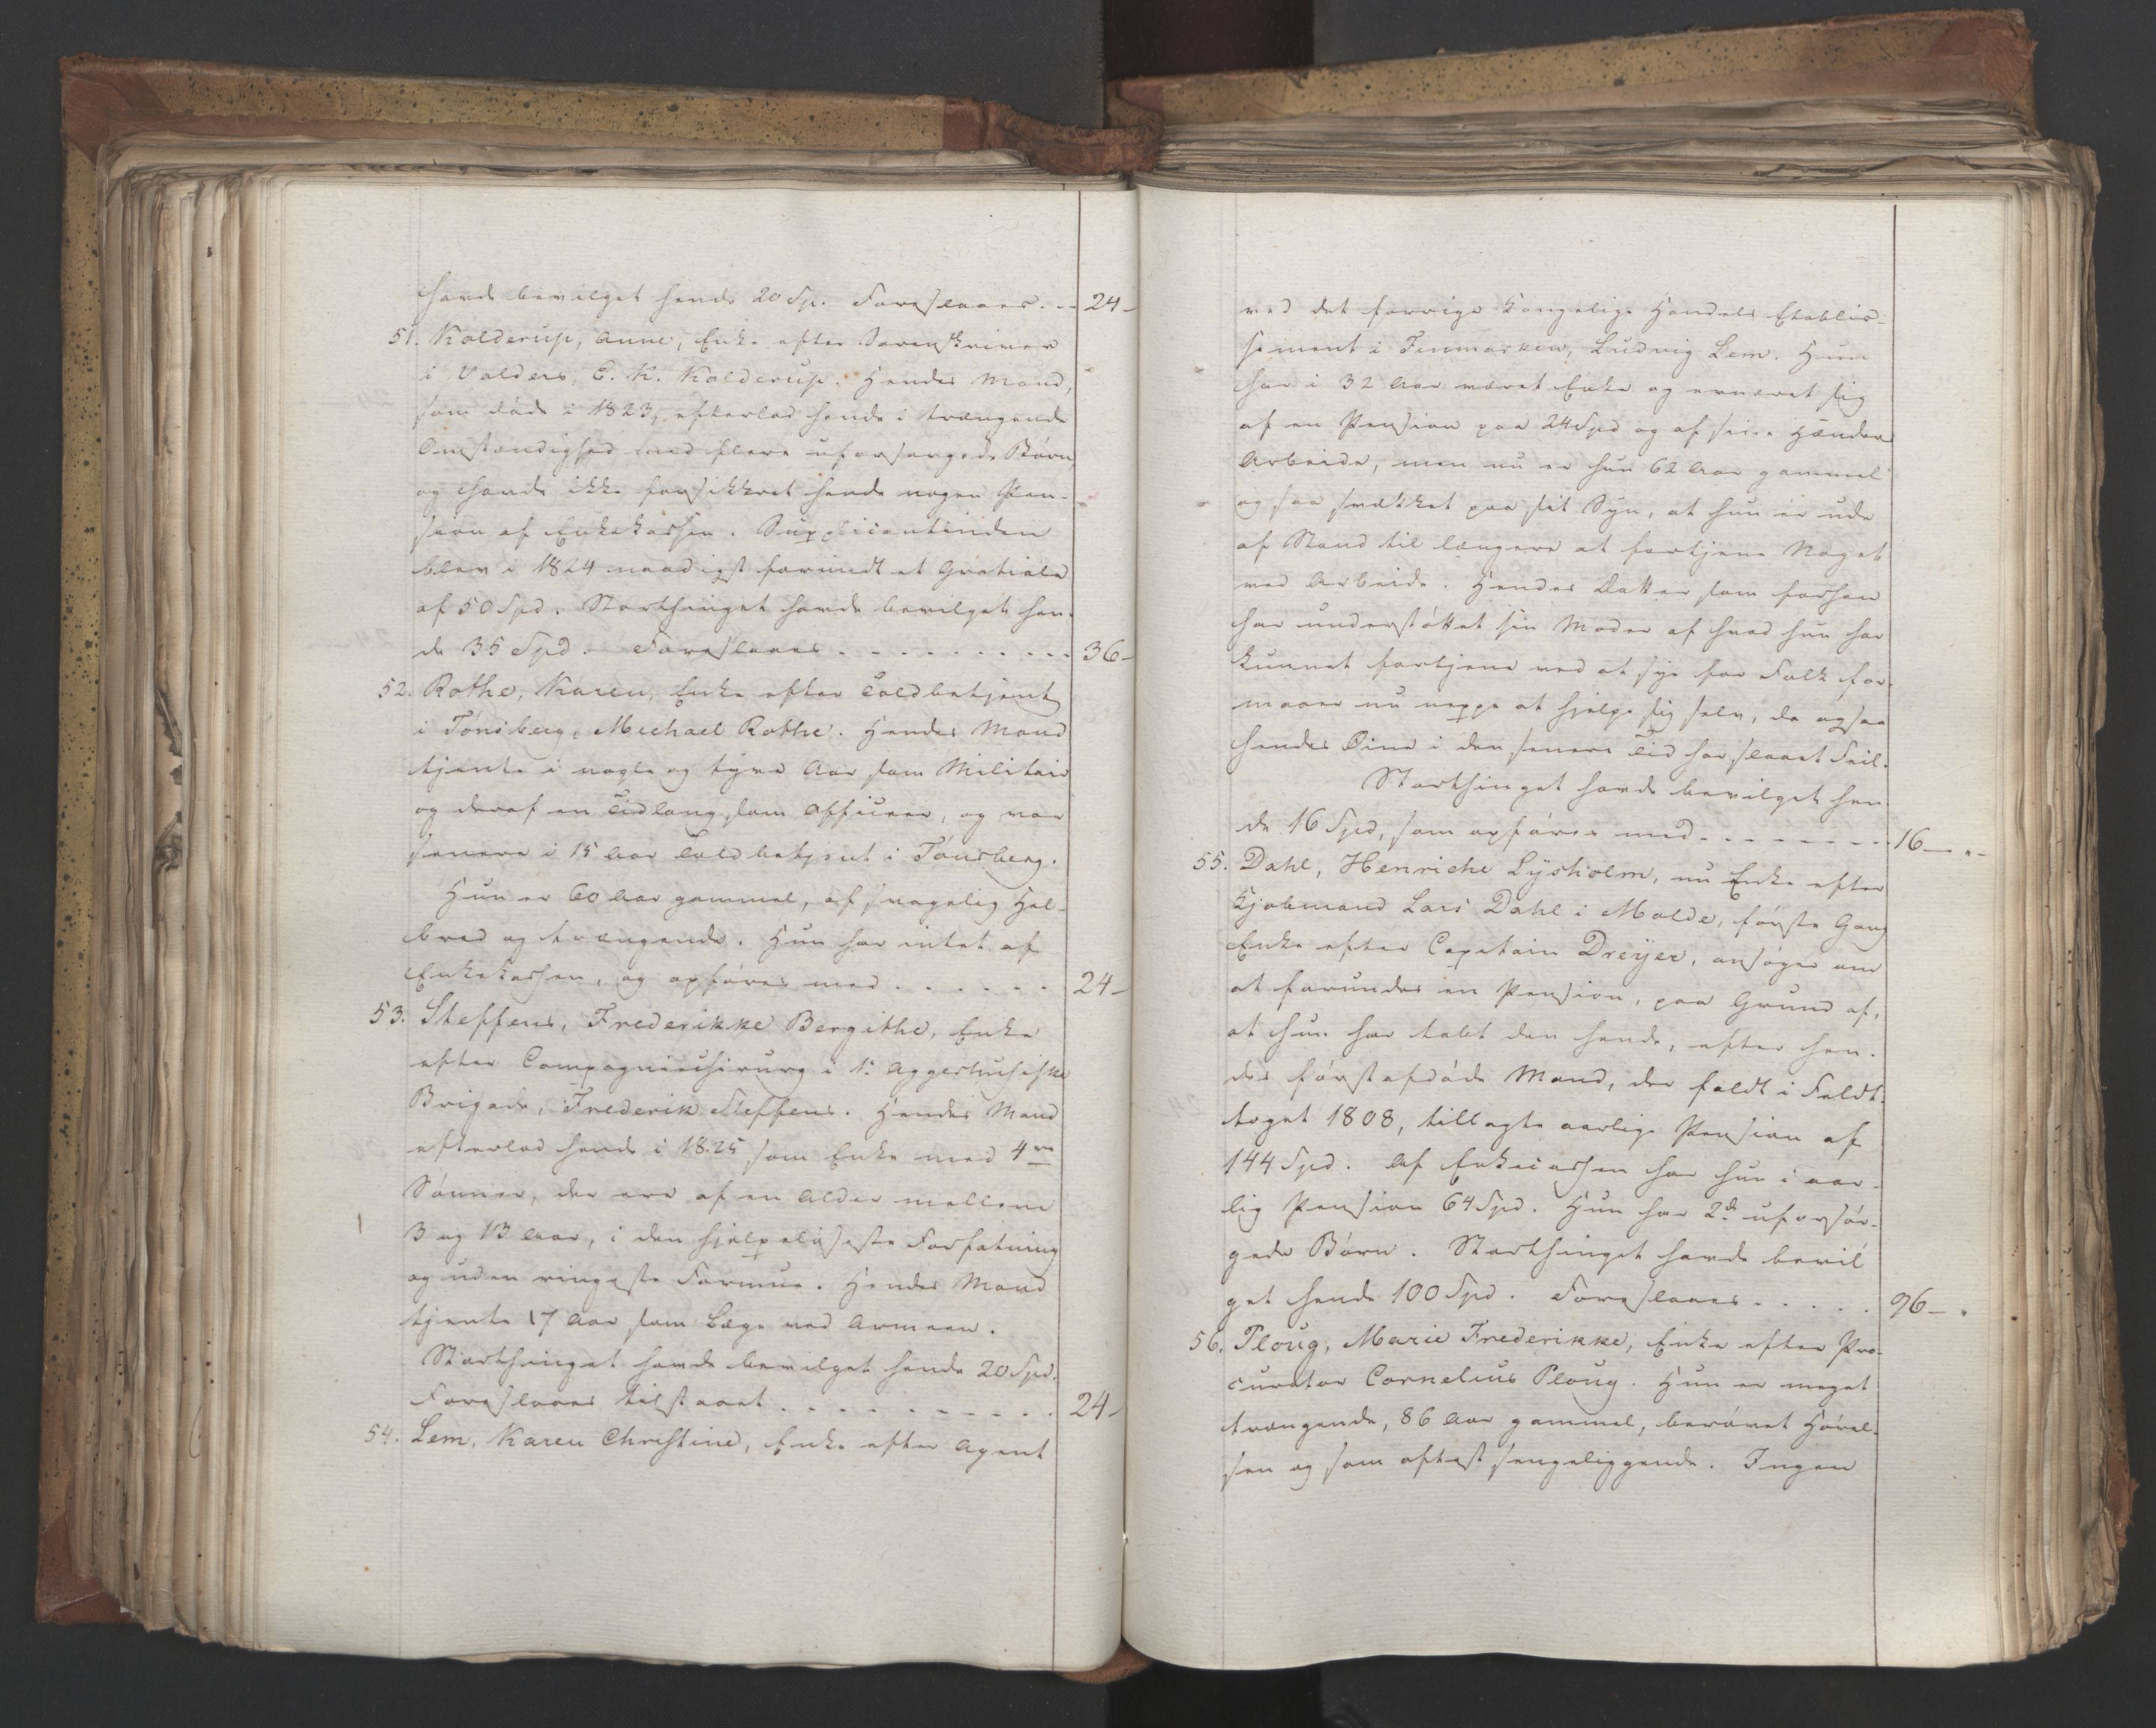 havde bevilget hende 20 Sp. Foreslaaes . . - 24 -
51. Kolderup, Anne, Enke efter Sorenskriver
i Valders, E. K. Kolderup. Hendes Mand,
som døde i 1823, efterlod hende i trængende
Omstændighed med flere uforsørgede Børn,
og havde ikke forsikkret hende nogen Pen-
sion af Enkekassen. Supplicantinden
blev i 1824 naadigst forundt et Gratiale
af 50 Spd. Storthinget havde bevilget hen-
de 35 Spd. Foreslaaes . . . . . . . . . . 36 -
52. Rothe, Karen, Enke efter Toldbetjent
i Tønsberg, Michael Rothe. Hendes Mand
tjente i nogle og tyve Aar som Militair
og deraf en Tidlang som Officeer, og var
senere i 15 Aar Toldbetjent i Tønsberg.
Hun er 60 Aar gammel, af svagelig Hel-
bred og trængende. Hun har intet af
Enkekassen, og opføres med . . . . . . 24 -
53. Steffens, Frederikke Bergithe, Enke
efter Compagniechirurg i 1: Aggershusiske
Brigade, Frederik Steffens. Hendes Mand
efterlod hende i 1825 som Enke med 4re
Sønner, der ere af en Alder mellem
3 og 13 Aar, i den hjelpeløseste Forfatning
og uden ringeste Formue. Hendes Mand
tjente 17 Aar som Læge ved Armeen.
Storthinget havde bevilget hende 20 Spd.
Foreslaaes tilstaaet . . . . . . . . . . 24 -
54. Lem, Karen Christine, Enke efter Agent
ved det forrige Kongelige Handels Etablis-
sement i Finmarken, Ludvig Lem. Hun
har i 32 Aar været Enke og ernæret sig
af en Pension paa 24 Spd og af sine Hænders
Arbeide, men nu er hun 62 Aar gammel
og saa svækket paa sit Syn, at hun er ude
af Stand til længere at fortjene Noget
ved Arbeide. Hendes Datter som forhen
har understøttet sin Moder af hvad hun har
kunnet fortjene ved at sye for Folk for-
maaer nu neppe at hjelpe sig selv, da ogsaa
hendes Øine i den senere Tid har slaaet Feil.
Storthinget havde bevilget hen-
de 16 Spd, som opføres med . . . . . . . . 16 - " -
55. Dahl, Henriche Lysholm, nu Enke efter
Kjøbmand Lars Dahl i Molde, første Gang
Enke efter Capitain Dreyer, ansøger om
at forundes en Pension, paa Grund af,
at hun har tabt den hende, efter hen-
des førstafdøde Mand, der faldt i Feldt-
toget 1808, tillagte aarlige Pension af
144 Spd. Af Enkecassen har hun i aar-
lig Pension 64 Spd. Hun har 2de uforsør-
gede Børn. Storthinget havde bevil
get hende 100 Spd. Foreslaaes . . . . . 96 - "
56. Ploug, Marie Frederikke, Enke efter Pro-
curator Cornelius Ploug. Hun er meget
trængende, 86 Aar gammel, berøvet Hørel-
sen og som oftest sengeliggende. Ingen